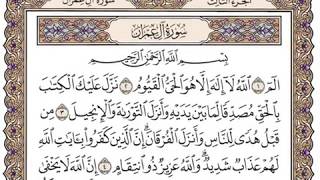 سورة آل عمران
الجزء الثالث
سُورَةُ آلِ عِمْرَانَ
بِسْمِ اللَّهِ الرَّحْمَٰنِ الرَّحِيمِ
الٓمٓ ١ ٱللَّهُ لَآ إِلَٰهَ إِلَّا هُوَ ٱلْحَىُّ ٱلْقَيُّومُ ٢ نَزَّلَ عَلَيْكَ ٱلْكِتَٰبَ
بِٱلْحَقِّ مُصَدِّقًا لِّمَا بَيْنَ يَدَيْهِ وَأَنزَلَ ٱلتَّوْرَىٰةَ وَٱلْإِنجِيلَ ٣ مِن
قَبْلُ هُدًى لِّلنَّاسِ وَأَنزَلَ ٱلْفُرْقَانَ ۗ إِنَّ ٱلَّذِينَ كَفَرُوا۟ بِـَٔايَٰتِ ٱللَّهِ
لَهُمْ عَذَابٌ شَدِيدٌ ۗ وَٱللَّهُ عَزِيزٌ ذُو ٱنتِقَامٍ ٤ إِنَّ ٱللَّهَ لَا يَخْفَىٰ